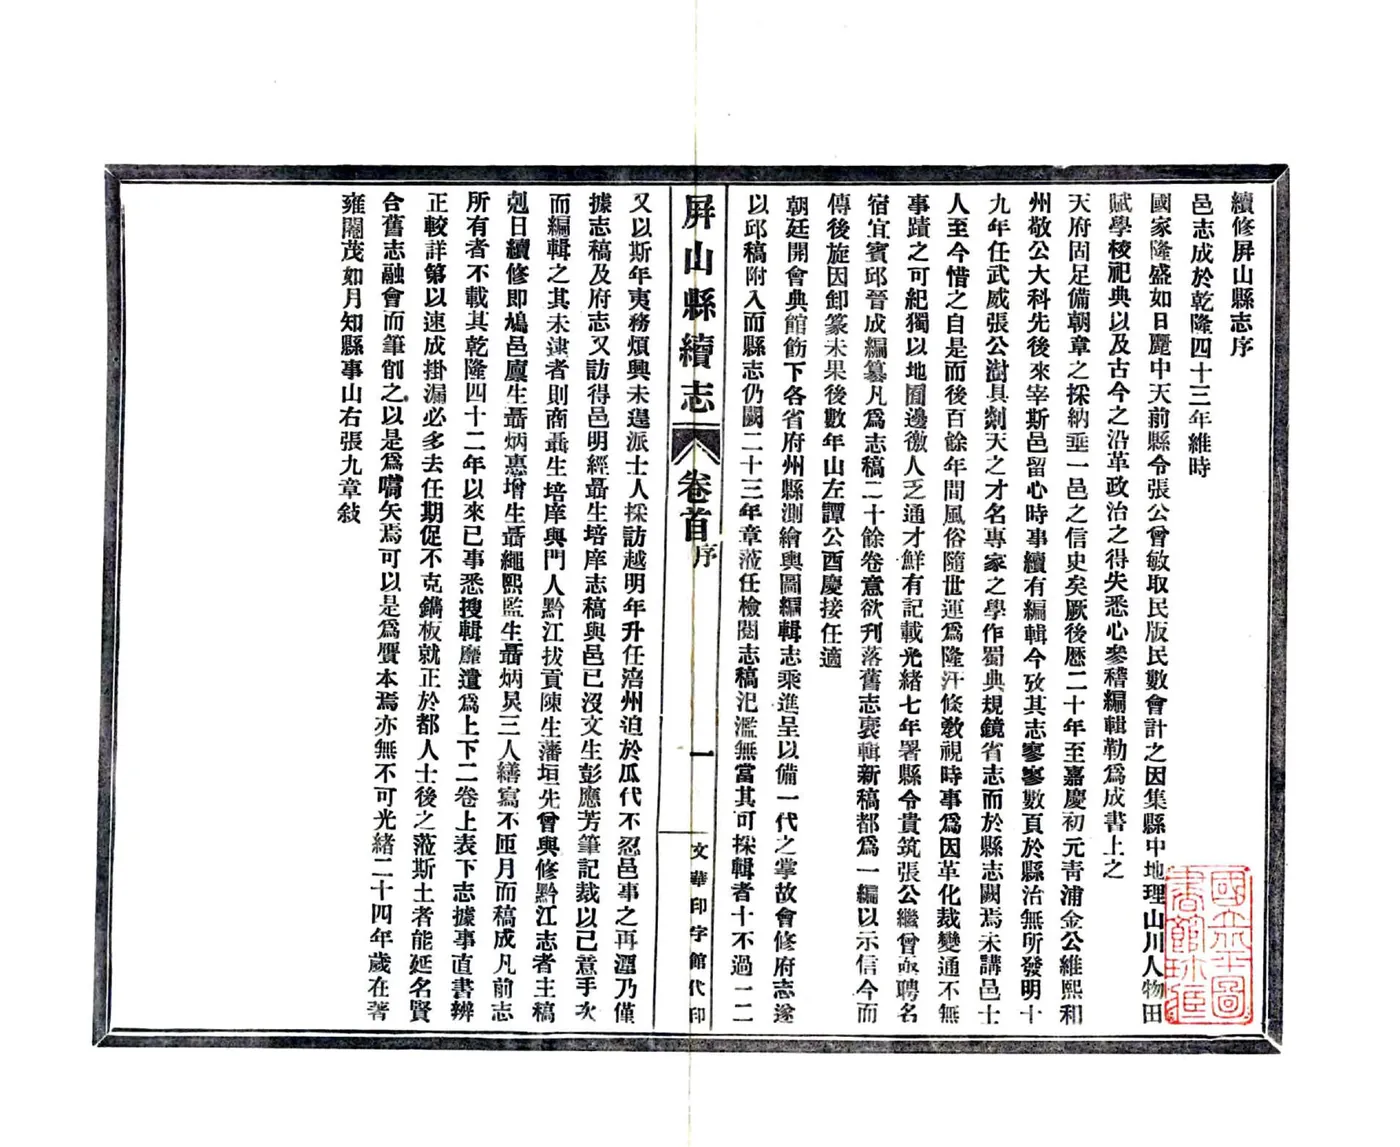 續修屏山縣志序
邑志成於乾隆四十三年維時
國家隆盛如日麗中天前縣令張公曾敏取民版民數會計之因集縣中地理山川人物田
賦學校祀典以及古今之沿革政治之得失悉心參稽編輯勒爲成書上之
天府固足備朝章之採納垂一邑之信史矣厥後歷二十年至嘉慶初元靑浦金公維熙和
州敬公大科先後來宰斯邑留心時事續有編輯今攷其志寥寥數頁於縣治無所發明十
九年任武威張公澍具剡天之才名專家之學作蜀典規鏡省志而於縣志闕焉未講邑士
人至今惜之自是而後百餘年間風俗隨世運爲隆汙條敎視時事爲因革化裁變通不無
事蹟之可紀獨以地囿邊徼人乏通才鮮有記載光緒七年署縣令貴筑張公繼曾敂聘名
宿宜賓邱晉成編纂凡爲志稿二十餘卷意欲刋落舊志裒輯新稿都爲一編以示信今而
傳後旋因卸篆未果後數年山左譚公酉慶接任適
朝廷開會典館飭下各省府州縣測繪輿圖編輯志乘進呈以備一代之掌故會修府志遂
以邱稿附入而縣志仍闕二十三年章蒞任檢閱志稿汜濫無當其可採輯者十不過一二
屏山縣續志 卷首 序 一 文華印字館代印
又以斯年夷務煩興未遑派士人採訪越明年升任涪州迫於瓜代不忍邑事之再湮乃僅
據志稿及府志又訪得邑明經聶生培庠志稿與邑已沒文生彭應芳筆記裁以己意手次
而編輯之其未逮者則商聶生培庠與門人黔江拔貢陳生藩垣先曾與修黔江志者主稿
剋日續修即鳩邑廩生聶炳惠增生聶繩熙監生聶炳炅三人繕寫不匝月而稿成凡前志
所有者不載其乾隆四十二年以來已事悉搜輯靡遺爲上下二卷上表下志據事直書辨
正較詳第以速成掛漏必多去任期促不克鐫板就正於都人士後之蒞斯土者能延名賢
合舊志融會而筆削之以是爲嚆矢焉可以是爲贋本焉亦無不可光緒二十四年歲在著
雍閹茂如月知縣事山右張九章敍
國立北平圖
書館珍藏